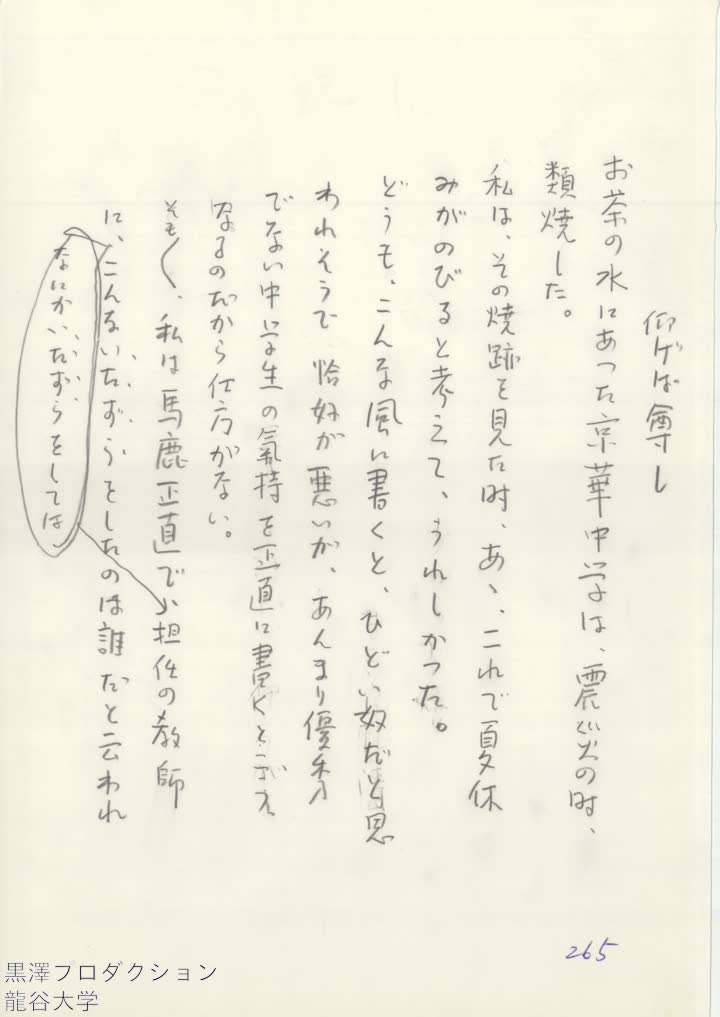 仰げば尊し
お茶の水にあった京華中学は、震災の時、
類焼した。
私は、その焼跡を見た時、あゝ、これで夏休
みがのびると考えて、うれしかった。
どうも、こんな風に書くと、ひどい奴だと思
われそうで恰好が悪いが、あんまり優秀
でない中学生の氣持を正直に書くとこう
なるのだから仕方がない。
そも〱、私は馬鹿正直で、担任の教師
に、こんないたずらをしたのは誰だと云われ
なにかいたずらをしては、
265
黒澤プロダクション
龍谷大学